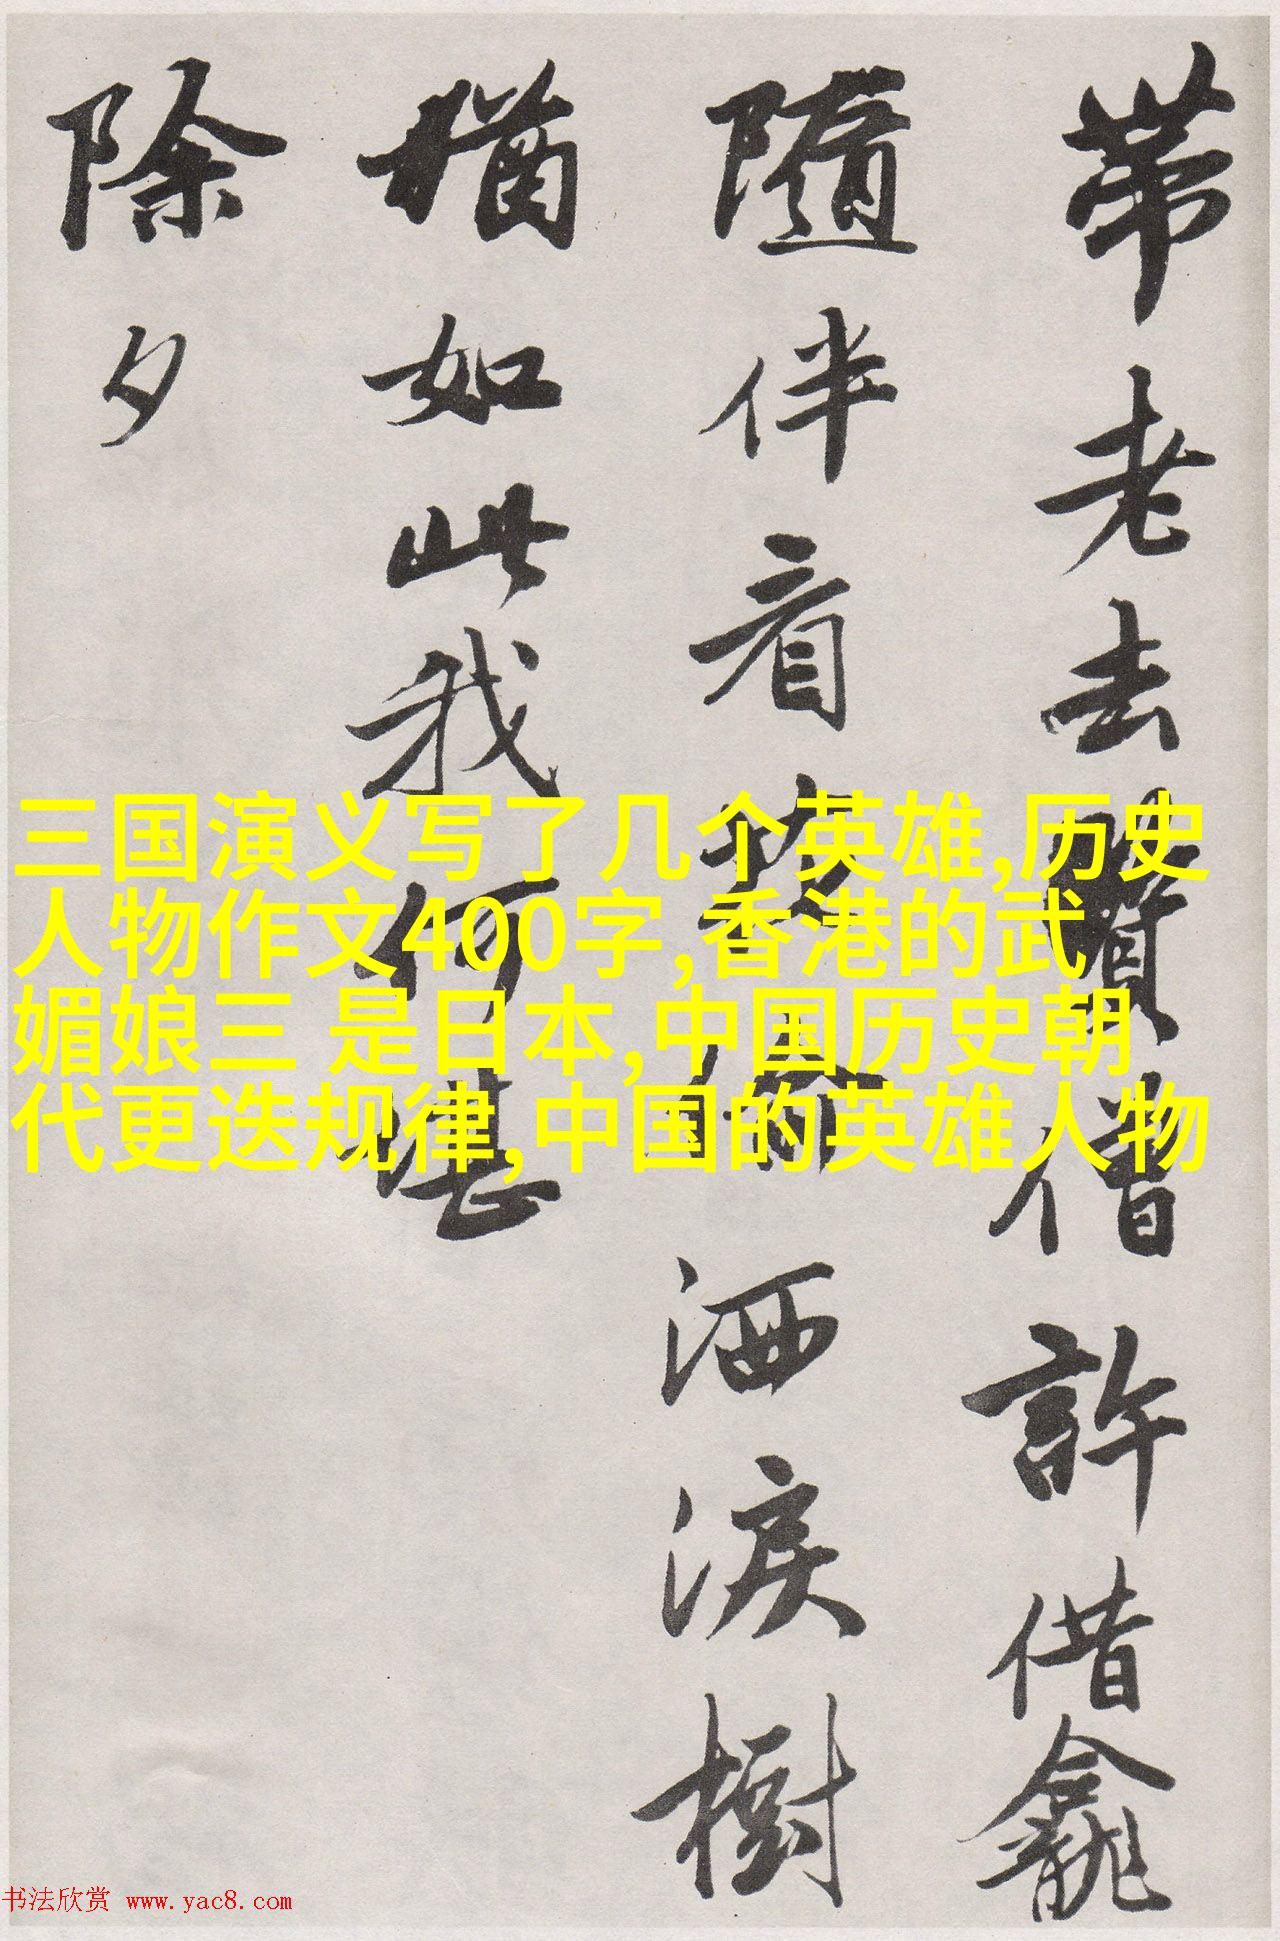 帶老去僧許借龕
隨伴看花偷洒淚樹
猶如此我何堪
除夕
三国演义写了几个英雄,历史
人物作文400字,香港的武
媚娘三 是日本,中国历史朝
代更迭规律,中国的英雄人物
书法欣赏 www.yac8.com